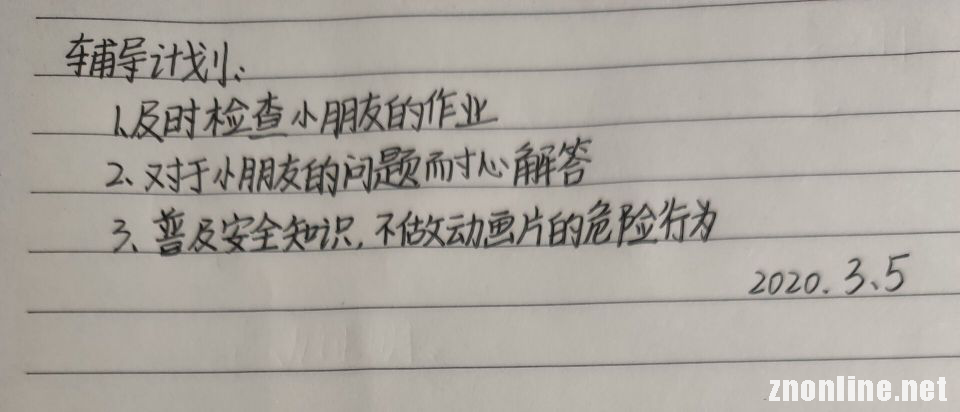 辅导计划:
1、及时检查小朋友的作业
2、对于小朋友的问题耐心解答
3、普及安全知识,不做动画片的危险行为
2020.3.5
znonline.net